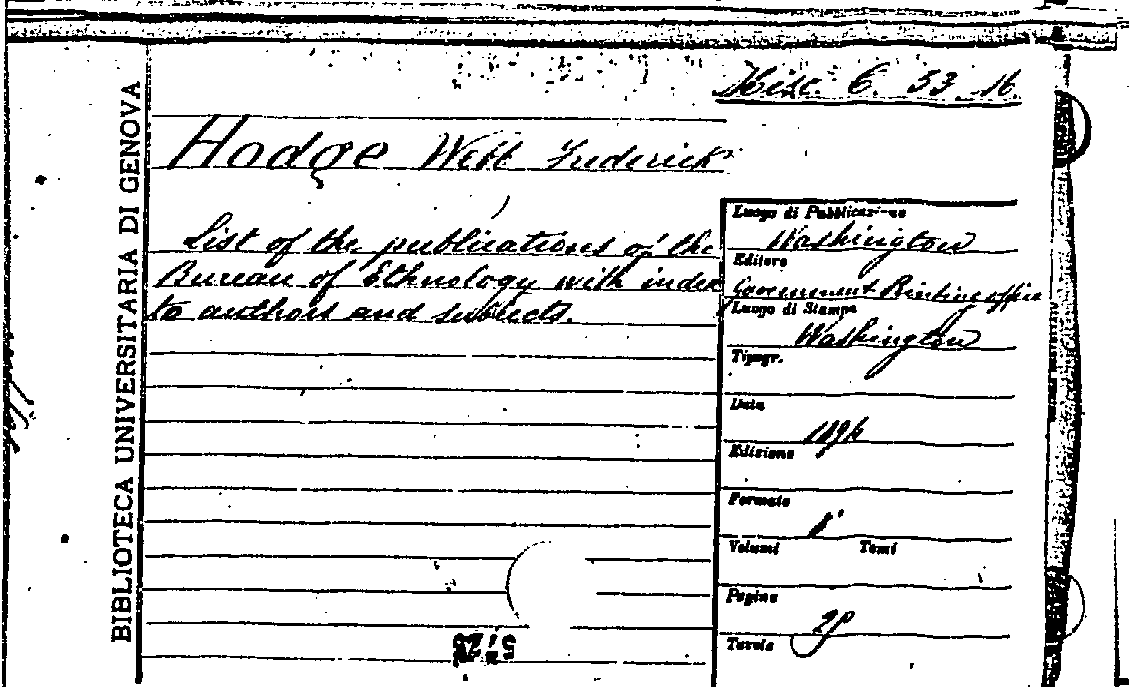 BIBLIOTECA UNIVERSITARIA DI GENOVA
Misc. C. 53 16
Hodge Webb Frederick
List of the publications of the
Bureau of Ethnology with index
to authors and subjects.
Luogo di Pubblicazione
Washington
Editore
Government Printing office
Luogo di Stampa
Washington
Tipogr.
Data
Edizione
Formato
8°
Volumi Tomi
Pagine
Tavole